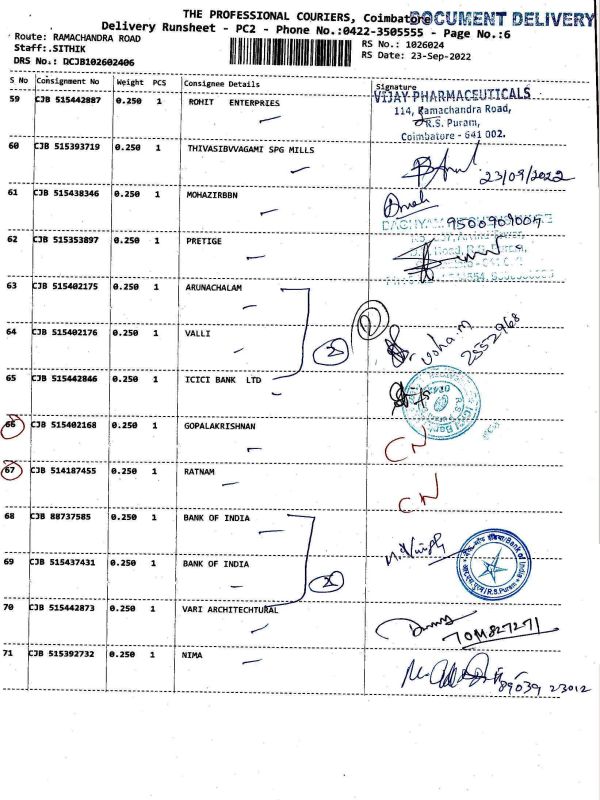 THE PROFESSIONAL COURIERS, Coimbatore
DOCUMENT DELIVERY
Delivery Runsheet - PC2 - Phone No.:0422-3505555 - Page No.:6
Route: RAMACHANDRA ROAD
RS No.: 1026024
Staff.:SITHIK
RS Date: 23-Sep-2022
DRS No.: DCJB102602406
S No Consignment No Weight PCS Consignee Details Signature
59 CJB 515442887 0.250 1 ROHIT ENTERPRIES
VIJAY PHARMACEUTICALS
114, Ramachandra Road,
R.S. Puram,
Coimbatore - 641 002.
60 CJB 515393719 0.250 1 THIVASIBVVAGAMI SPG MILLS
23/09/2022
61 CJB 515438346 0.250 1 MOHAZIRBBN
62 CJB 515353897 0.250 1 PRETIGE
63 CJB 515402175 0.250 1 ARUNACHALAM
2
64 CJB 515402176 0.250 1 VALLI
usha.m
2552968
65 CJB 515442846 0.250 1 ICICI BANK LTD
66 CJB 515402168 0.250 1 GOPALAKRISHNAN
CN
67 CJB 514187455 0.250 1 RATNAM
CN
68 CJB 88737585 0.250 1 BANK OF INDIA
69 CJB 515437431 0.250 1 BANK OF INDIA
70 CJB 515442873 0.250 1 VARI ARCHITECHTURAL
71 CJB 515392732 0.250 1 NIMA
89039 23012